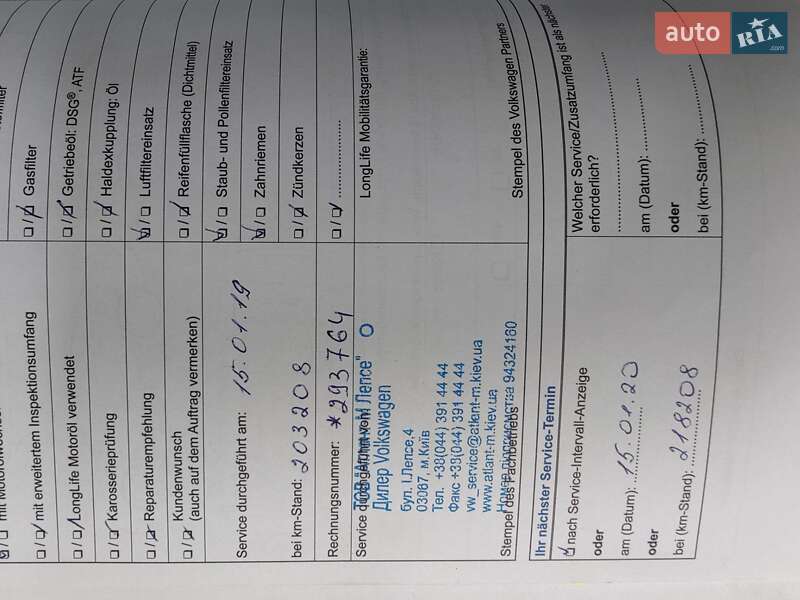 auto RIA .com
mit Motorölwechsel
□/□ mit erweitertem Inspektionsumfang
□/□ Gasfilter
□/□ LongLife Motoröl verwendet
□/□ Getriebeöl: DSG®, ATF
□/□ Karosserieprüfung
□/□ Haldexkupplung: Öl
□/□ Reparaturempfehlung
□/□ Luftfiltereinsatz
□/□ Kundenwunsch
(auch auf dem Auftrag vermerken)
□/□ Reifenfüllflasche (Dichtmittel)
Service durchgeführt am: 15.01.19
□/□ Staub- und Pollenfiltereinsatz
□/□ Zahnriemen
bei km-Stand: 203208
□/□ Zündkerzen
Rechnungsnummer: *293764
□/□ ....................
Service durchgeführt von:
LongLife Mobilitätsgarantie:
Дилер Volkswagen
бул. І.Лепсе,4
03067, м.Київ
Тел. +38(044) 391 44 44
Факс +38(044) 391 44 44
vw_service@atlant-m.kiev.ua
www.atlant-m.kiev.ua
94324160
Stempel des Fachbetriebs
Stempel des Volkswagen Partners
Ihr nächster Service-Termin
nach Service-Intervall-Anzeige
oder
am (Datum): 15.01.20
oder
bei (km-Stand): 218208
Welcher Service/Zusatzumfang ist als nächster
erforderlich?
am (Datum):
oder
bei (km-Stand):